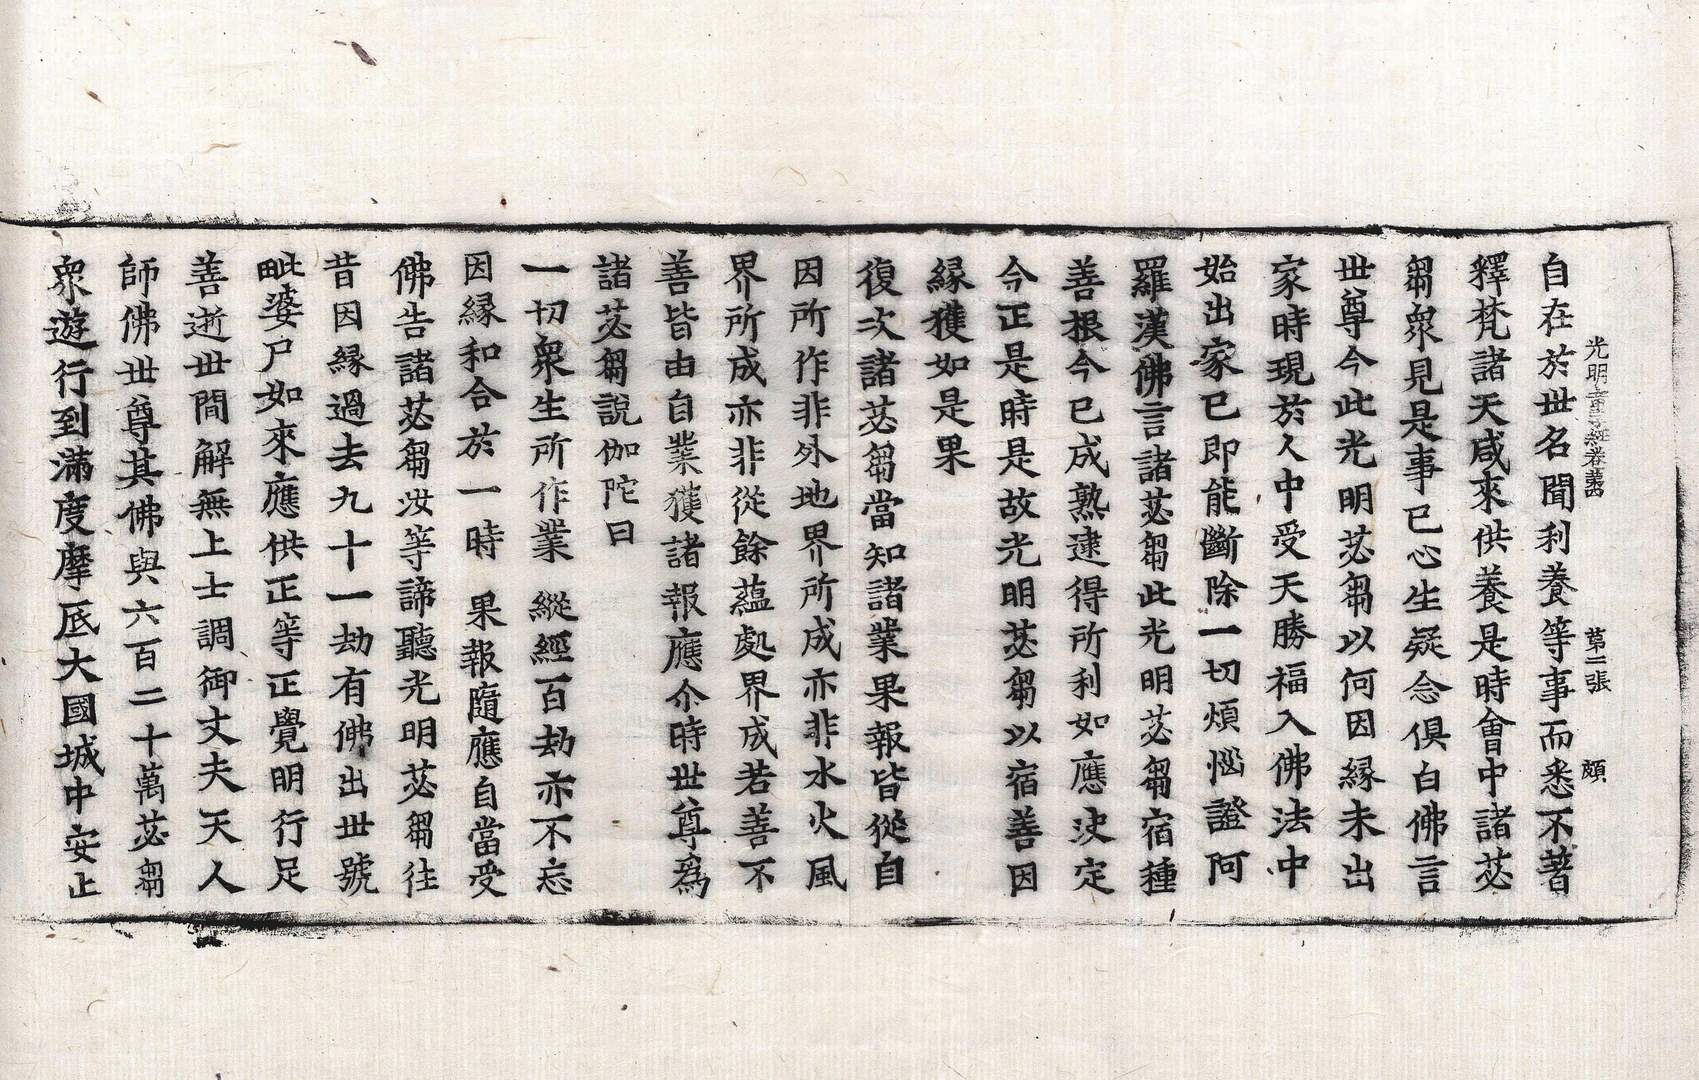 光明童子經卷第四 第二張 頗
自在於世名聞利養等事而悉不著
釋梵諸天咸來供養是時會中諸苾
芻衆見是事已心生疑念俱白佛言
世尊今此光明苾芻以何因縁未出
家時現於人中受天勝福入佛法中
始出家已即能斷除一切煩惱證阿
羅漢佛言諸苾芻此光明苾芻宿種
善根今已成熟逮得所利如應決定
今正是時是故光明苾芻以宿善因
縁獲如是果
復次諸苾芻當知諸業果報皆從自
因所作非外地界所成亦非水火風
界所成亦非從餘蘊處界成若善不
善皆由自業獲諸報應尒時世尊爲
諸苾芻說伽陀曰
一切衆生所作業 縱經百劫亦不忘
因縁和合於一時 果報隨應自當受
佛告諸苾芻汝等諦聽光明苾芻往
昔因縁過去九十一劫有佛出世號
毗婆尸如來應供正等正覺明行足
善逝世間解無上士調御丈夫天人
師佛世尊其佛與六百二十萬苾芻
衆遊行到滿度摩底大國城中安止